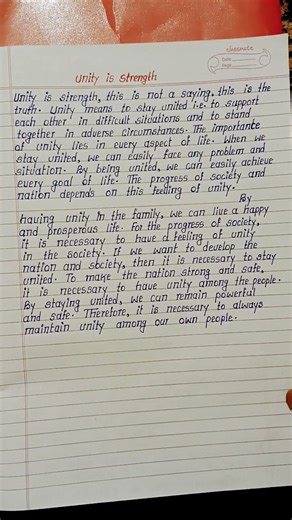 classmate
Date
Page
Unity is Strength
Unity is strength, this is not a saying, this is the
truth. Unity means to stay united i.e. to support
each other in difficult situations and to stand
together in adverse circumstances. The importance
of unity lies in every aspect of life. When we
stay united, we can easily face any problem and
situation. By being united, we can easily achieve
every goal of life. The progress of society and
nation depends on this feeling of unity.
By
having unity in the family, we can live a happy
and prosperous life. For the progress of society,
it is necessary to have a feeling of unity
in the society. If we want to develop the
nation and society, then it is necessary to stay
united. To make the nation strong and safe,
it is necessary to have unity among the people.
By staying united, we can remain powerful
and safe. Therefore, it is necessary to always
maintain unity among our own people.